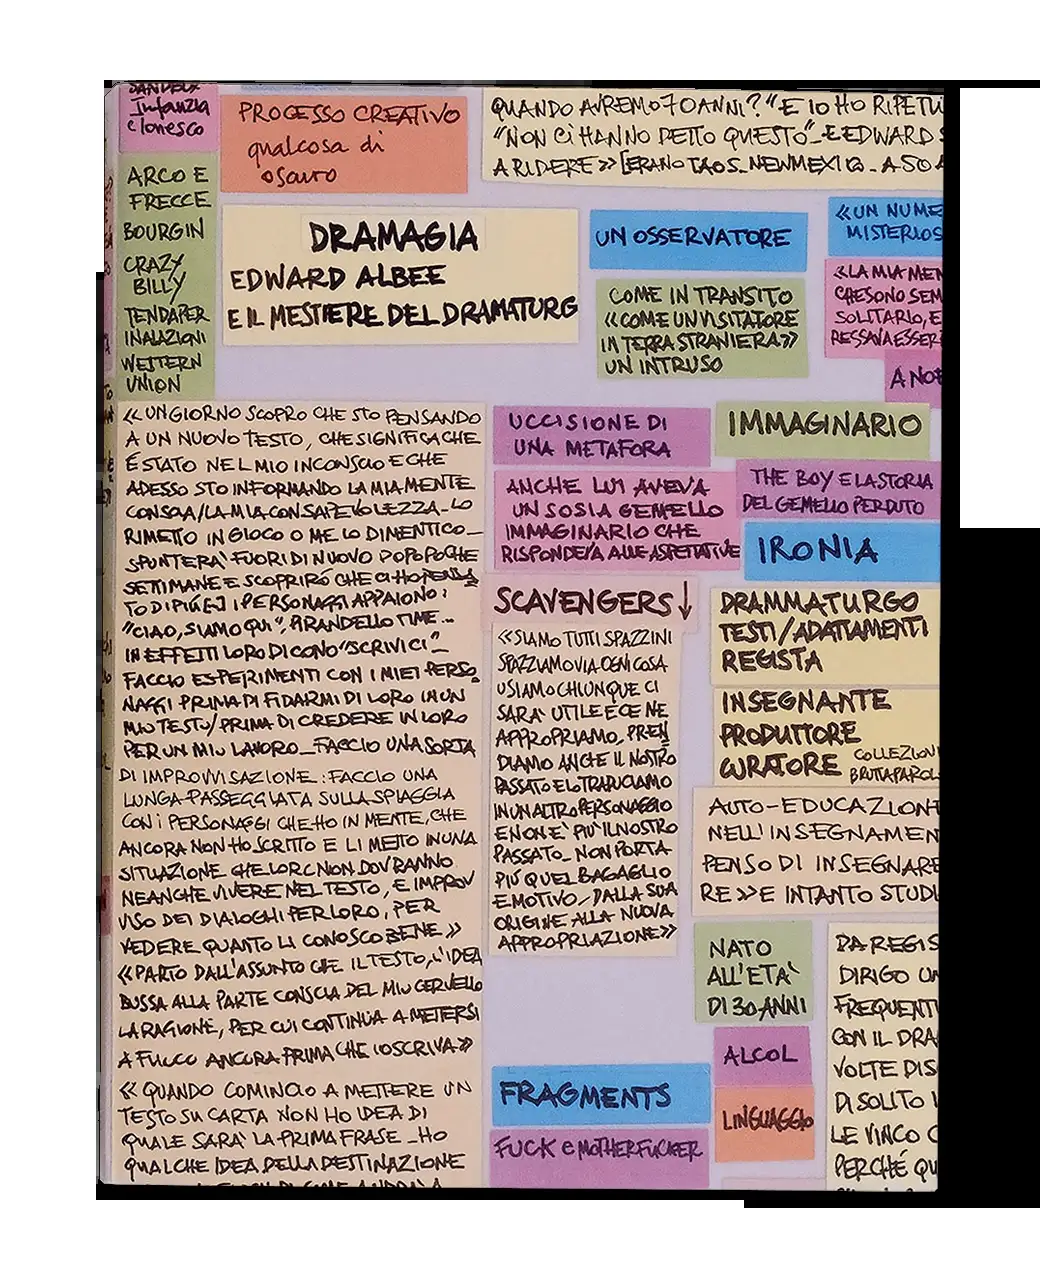 Infanzia
e Ionesco
ARCO E
FRECCE
BOURGIN
CRAZY
BILLY
TENDAPER
INALAZIONI
WESTERN
UNION
PROCESSO CREATIVO
qualcosa di
oscuro
QUANDO AVREMO 70 ANNI?" E IO HO RIPETU
"NON CI HANNO DETTO QUESTO"_ E EDWARD S
A RIDERE» [ERANO TAOS_NEWMEXICO_A 50 A
DRAMAGIA
EDWARD ALBEE
E IL MESTIERE DEL DRAMATURG
UN OSSERVATORE
COME IN TRANSITO
«COME UN VISITATORE
IN TERRA STRANIERA»
UN INTRUSO
«UN NUME
MISTERIOS
«LA MIA MEN
CHE SONO SEM
SOLITARIO, E
RESSAVA ESSER
A NOI
«UN GIORNO SCOPRO CHE STO PENSANDO
A UN NUOVO TESTO, CHE SIGNIFICA CHE
É STATO NEL MIO INCONSCIO E CHE
ADESSO STO INFORMANDO LA MIA MENTE
CONSCIA/LA MIA CONSAPEVOLEZZA_LO
RIMETTO IN GIOCO O ME LO DIMENTICO_
SPUNTERA' FUORI DI NUOVO DOPO POCHE
SETTIMANE E SCOPRIRÓ CHE CI HO PENSA
TO DI PIÚ [...] I PERSONAGGI APPAIONO:
"CIAO, SIAMO QUI", PIRANDELLO TIME...
IN EFFETTI LORO DICONO "SCRIVICI"_
FACCIO ESPERIMENTI CON I MIEI PERSO
NAGGI PRIMA DI FIDARMI DI LORO IN UN
MIO TESTO/PRIMA DI CREDERE IN LORO
PER UN MIO LAVORO_FACCIO UNA SORTA
DI IMPROVVISAZIONE: FACCIO UNA
LUNGA PASSEGGIATA SULLA SPIAGGIA
CON I PERSONAGGI CHE HO IN MENTE, CHE
ANCORA NON HO SCRITTO E LI METTO IN UNA
SITUAZIONE CHE LORO NON DOVRANNO
NEANCHE VIVERE NEL TESTO, E IMPROV
VISO DEI DIALOGHI PER LORO, PER
VEDERE QUANTO LI CONOSCO BENE.»
«PARTO DALL'ASSUNTO CHE IL TESTO, L'IDEA
BUSSA ALLA PARTE CONSCIA DEL MIO CERVELLO
LA RAGIONE, PER CUI CONTINUA A METTERSI
A FUOCO ANCORA PRIMA CHE IO SCRIVA»
«QUANDO COMINCIO A METTERE UN
TESTO SU CARTA NON HO IDEA DI
QUALE SARA' LA PRIMA FRASE_HO
QUALCHE IDEA DELLA DESTINAZIONE
UCCISIONE DI
UNA METAFORA
ANCHE LUI AVEVA
UN SOSIA GEMELLO
IMMAGINARIO CHE
RISPONDEVA ALLE ASPETTATIVE
SCAVENGERS↓
«SIAMO TUTTI SPAZZINI
SPAZZIAMO VIA OGNI COSA
USIAMO CHIUNQUE CI
SARA' UTILE E CE NE
APPROPRIAMO, PREN
DIAMO ANCHE IL NOSTRO
PASSATO E LO TRADUCIAMO
IN UN ALTRO PERSONAGGIO
E NON E' PIU' IL NOSTRO
PASSATO_NON PORTA
PIÚ QUEL BAGAGLIO
EMOTIVO, DALLA SUA
ORIGINE ALLA NUOVA
APPROPRIAZIONE»
FRAGMENTS
FUCK e MOTHERFUCKER
IMMAGINARIO
THE BOY E LA STORIA
DEL GEMELLO PERDUTO
IRONIA
DRAMMATURGO
TESTI/ADATTAMENTI
REGISTA
INSEGNANTE
PRODUTTORE
CURATORE COLLEZIONI
BRUTTA PAROL
AUTO-EDUCAZIONE
NELL'INSEGNAMEN
PENSO DI INSEGNARE
RE»E INTANTO STUDI
NATO
ALL'ETA'
DI 30 ANNI
ALCOL
LINGUAGGIO
DA REGIS
DIRIGO UN
FREQUENTI
CON IL DRA
VOLTE DIS
DI SOLITO
LE VINCO
PERCHÉ QU